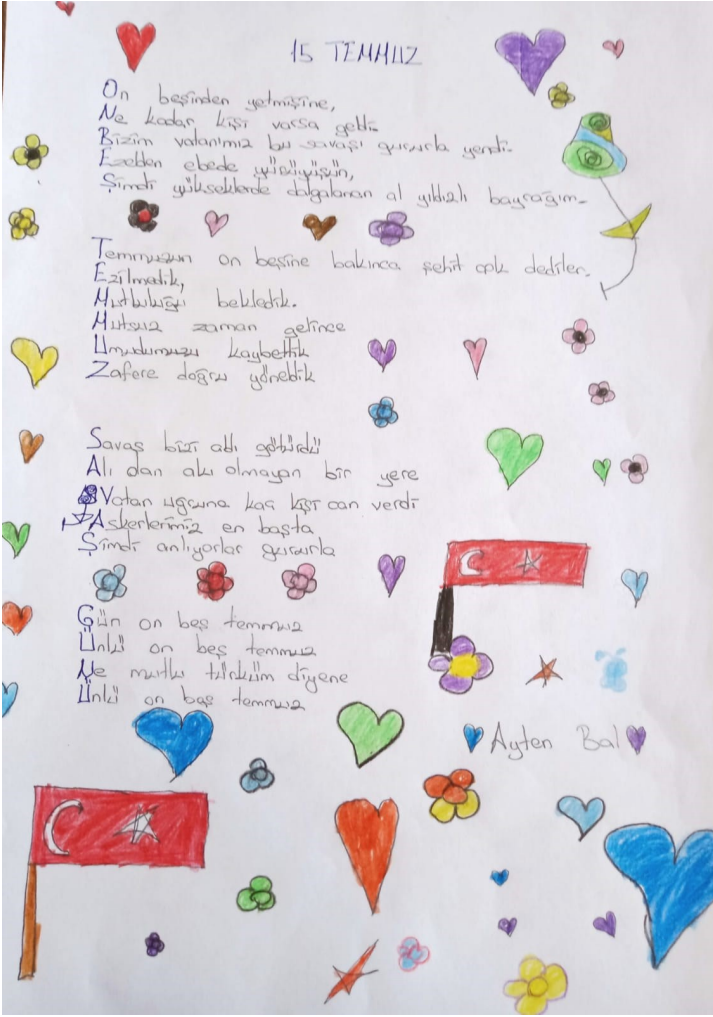 15 TEMMUZ
On beşinden yetmişine,
Ne kadar kişi varsa geldi.
Bizim vatanımız bu savaşı gururla yendi.
Ezelden ebede yürüyüşün,
Şimdi yükseklerde dalgalanan al yıldızlı bayrağım.
Temmuzun on beşine bakınca şehit çok dediler.
Ezilmedik,
Mutluluğu bekledik.
Mutsuz zaman gelince
Umudumuzu kaybettik
Zafere doğru yöneldik
Savaş bizi aldı götürdü
Alı dan akı olmayan bir yere
Vatan uğruna kaç kişi can verdi
Askerlerimiz en başta
Şimdi anlıyorlar gururla
Gün on beş temmuz
Ünlü on beş temmuz
Ne mutlu türküm diyene
Ünlü on beş temmuz
Ayten Bal